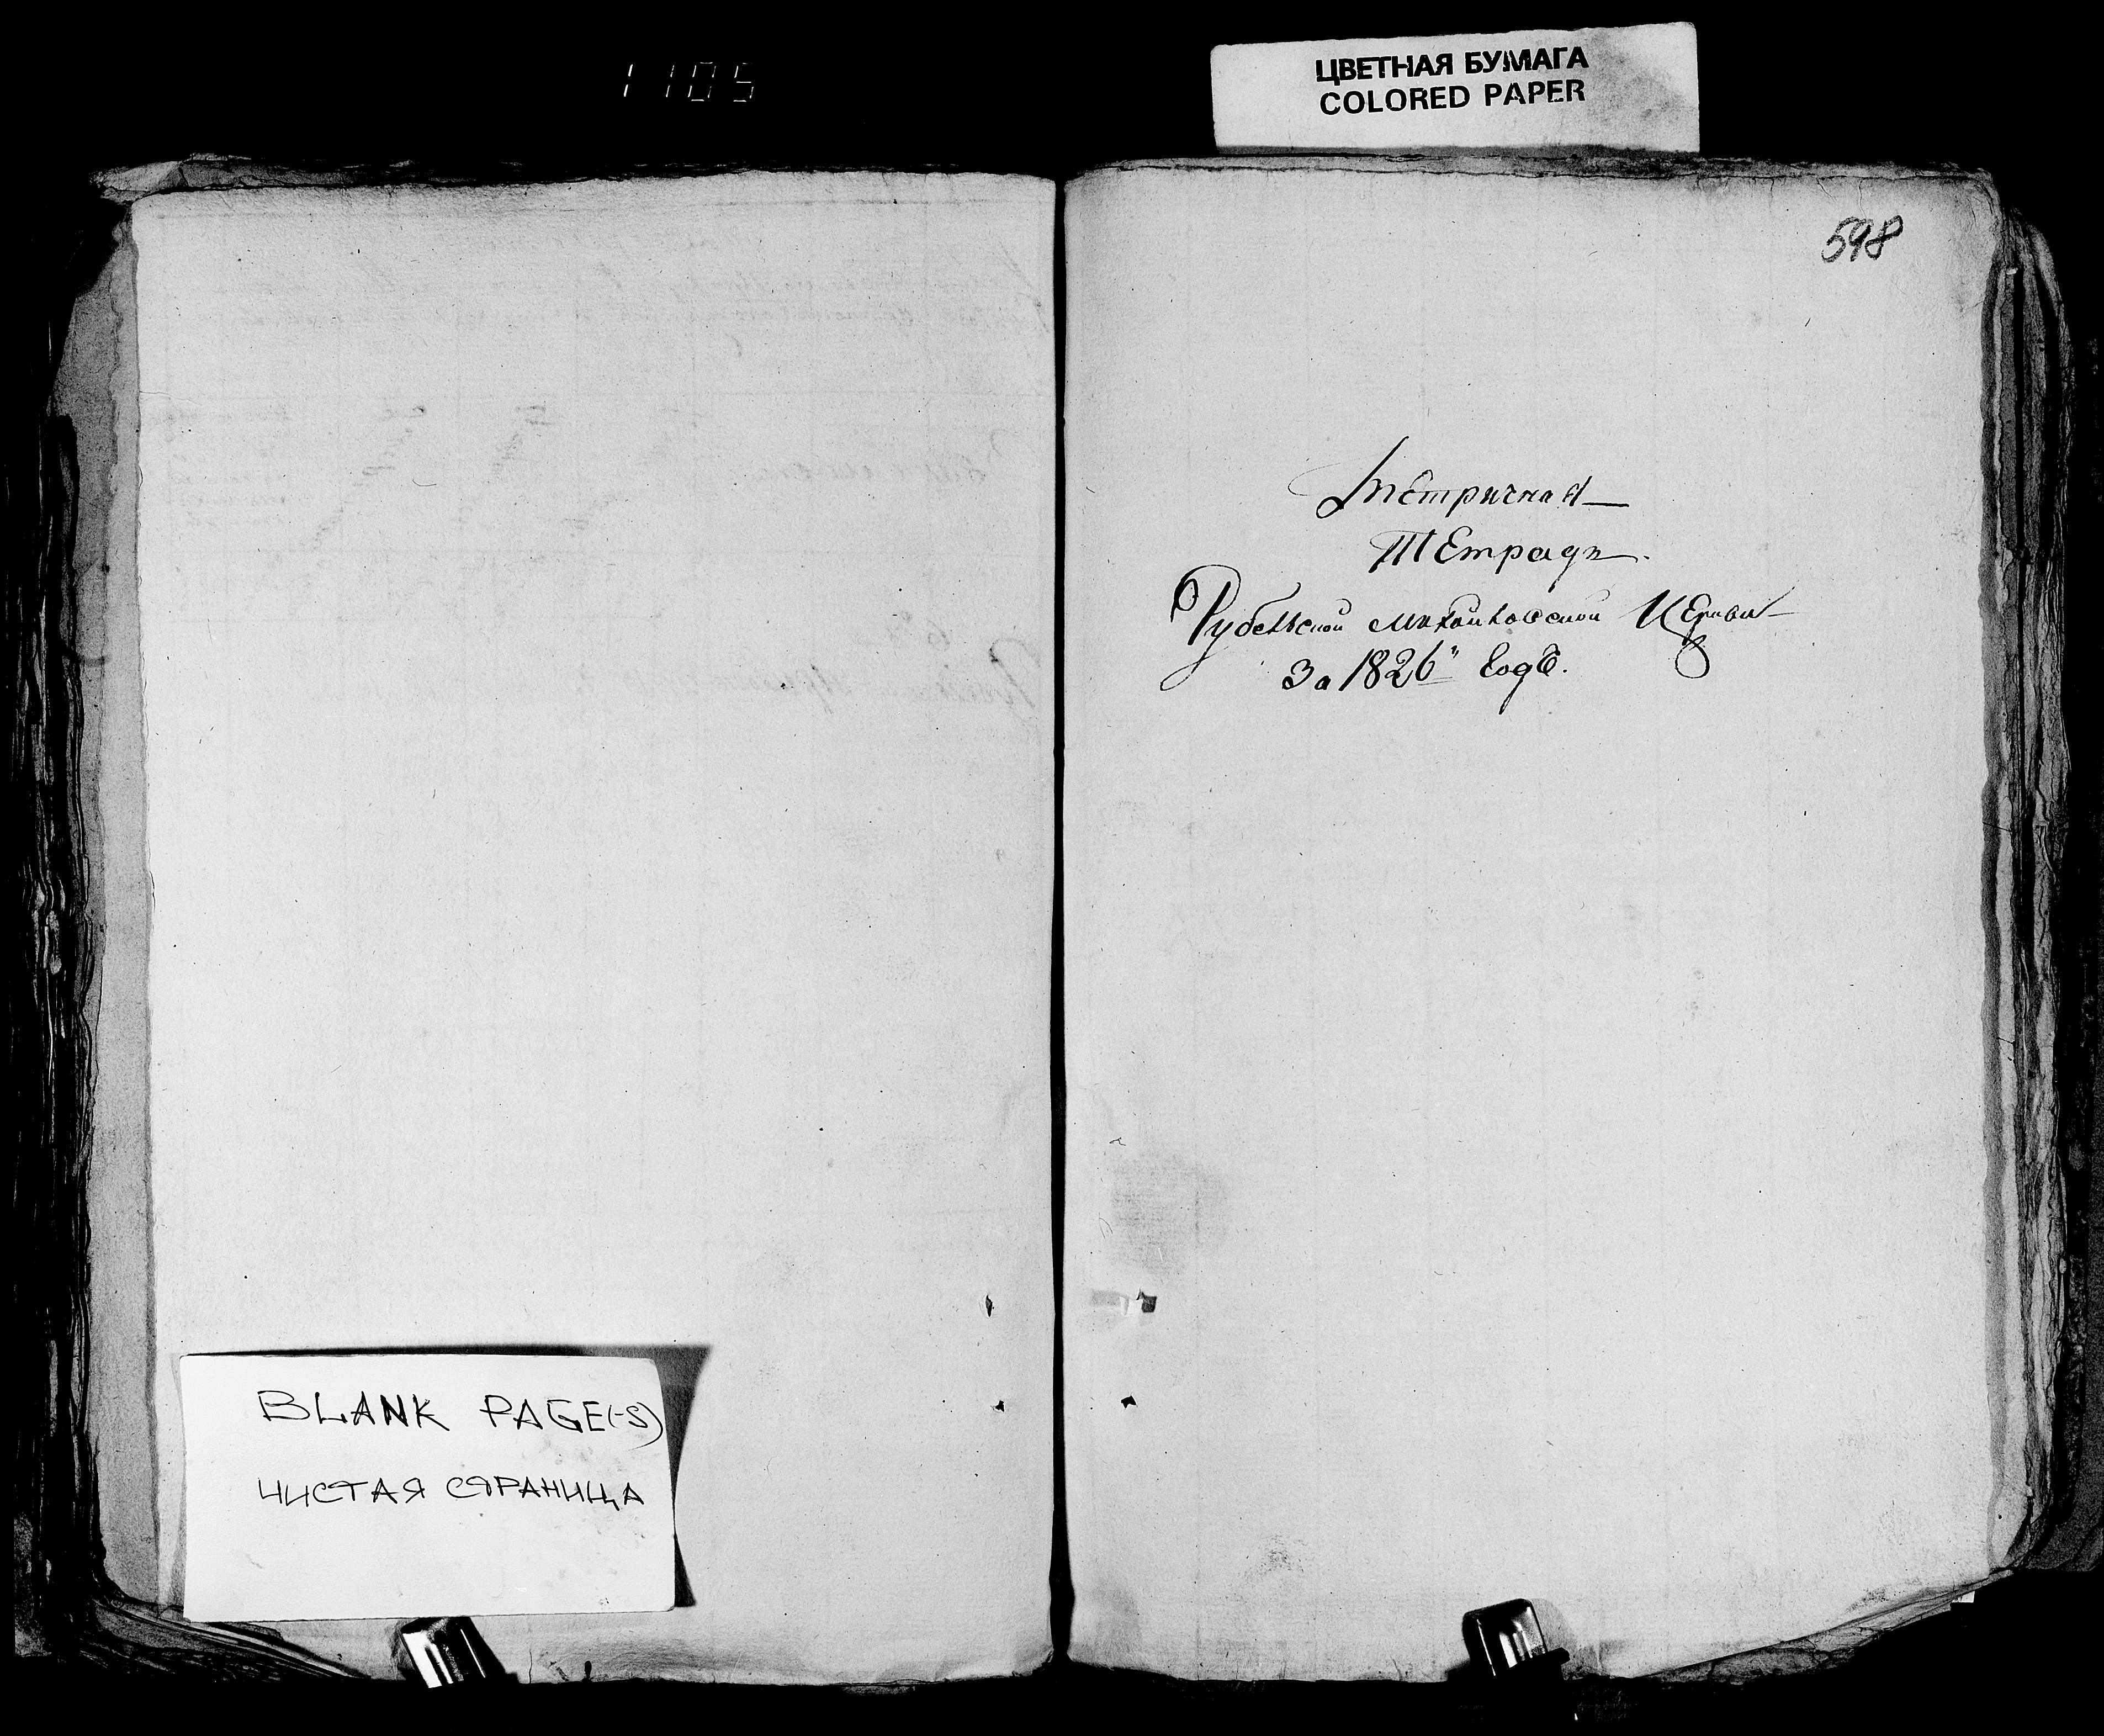 1105
ЦВЕТНАЯ БУМАГА
COLORED PAPER
598
Метричная
Тетрадь.
Рубельской Михайловской Церкви
За 1826" Годъ.
BLANK PAGE(-S)
ЧИСТАЯ СТРАНИЦА